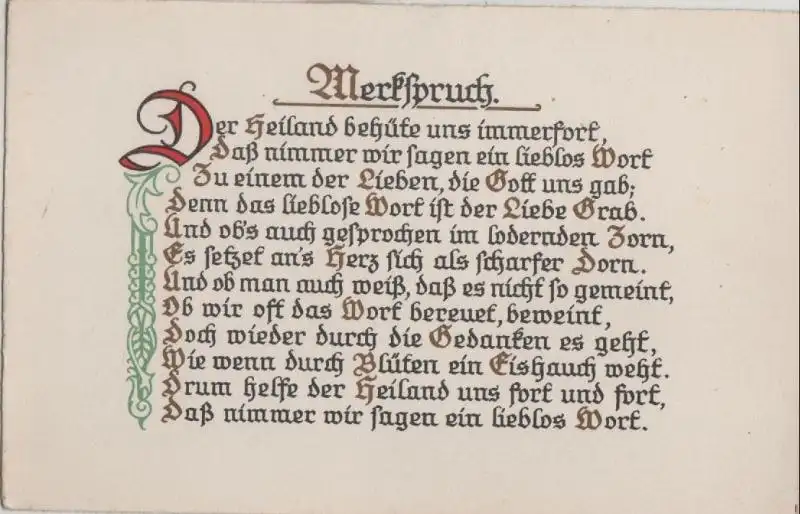 Merkspruch.
Der Heiland behüte uns immerfort,
Daß nimmer wir sagen ein lieblos Wort
Zu einem der Lieben, die Gott uns gab;
Denn das lieblose Wort ist der Liebe Grab.
Und ob's auch gesprochen im lodernden Zorn,
Es setzet an's Herz sich als scharfer Dorn.
Und ob man auch weiß, daß es nicht so gemeint,
Ob wir oft das Wort bereuet, beweint,
Doch wieder durch die Gedanken es geht,
Wie wenn durch Blüten ein Eishauch weht.
Drum helfe der Heiland uns fort und fort,
Daß nimmer wir sagen ein lieblos Wort.